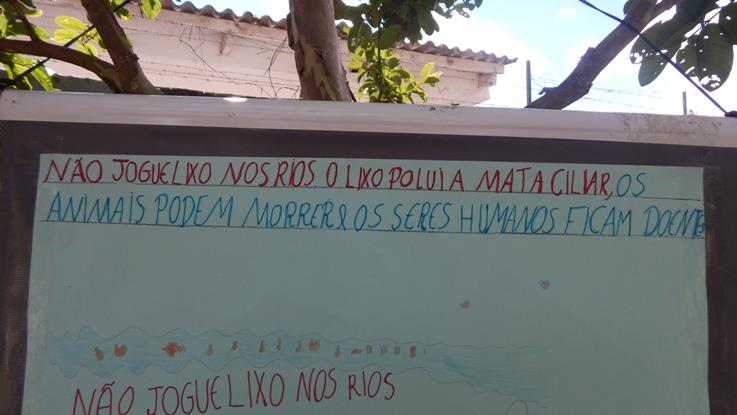 NÃO JOGUE LIXO NOS RIOS. O LIXO POLUI A MATA CILIAR, OS
ANIMAIS PODEM MORRER E OS SERES HUMANOS FICAM DOENTES
NÃO JOGUE LIXO NOS RIOS